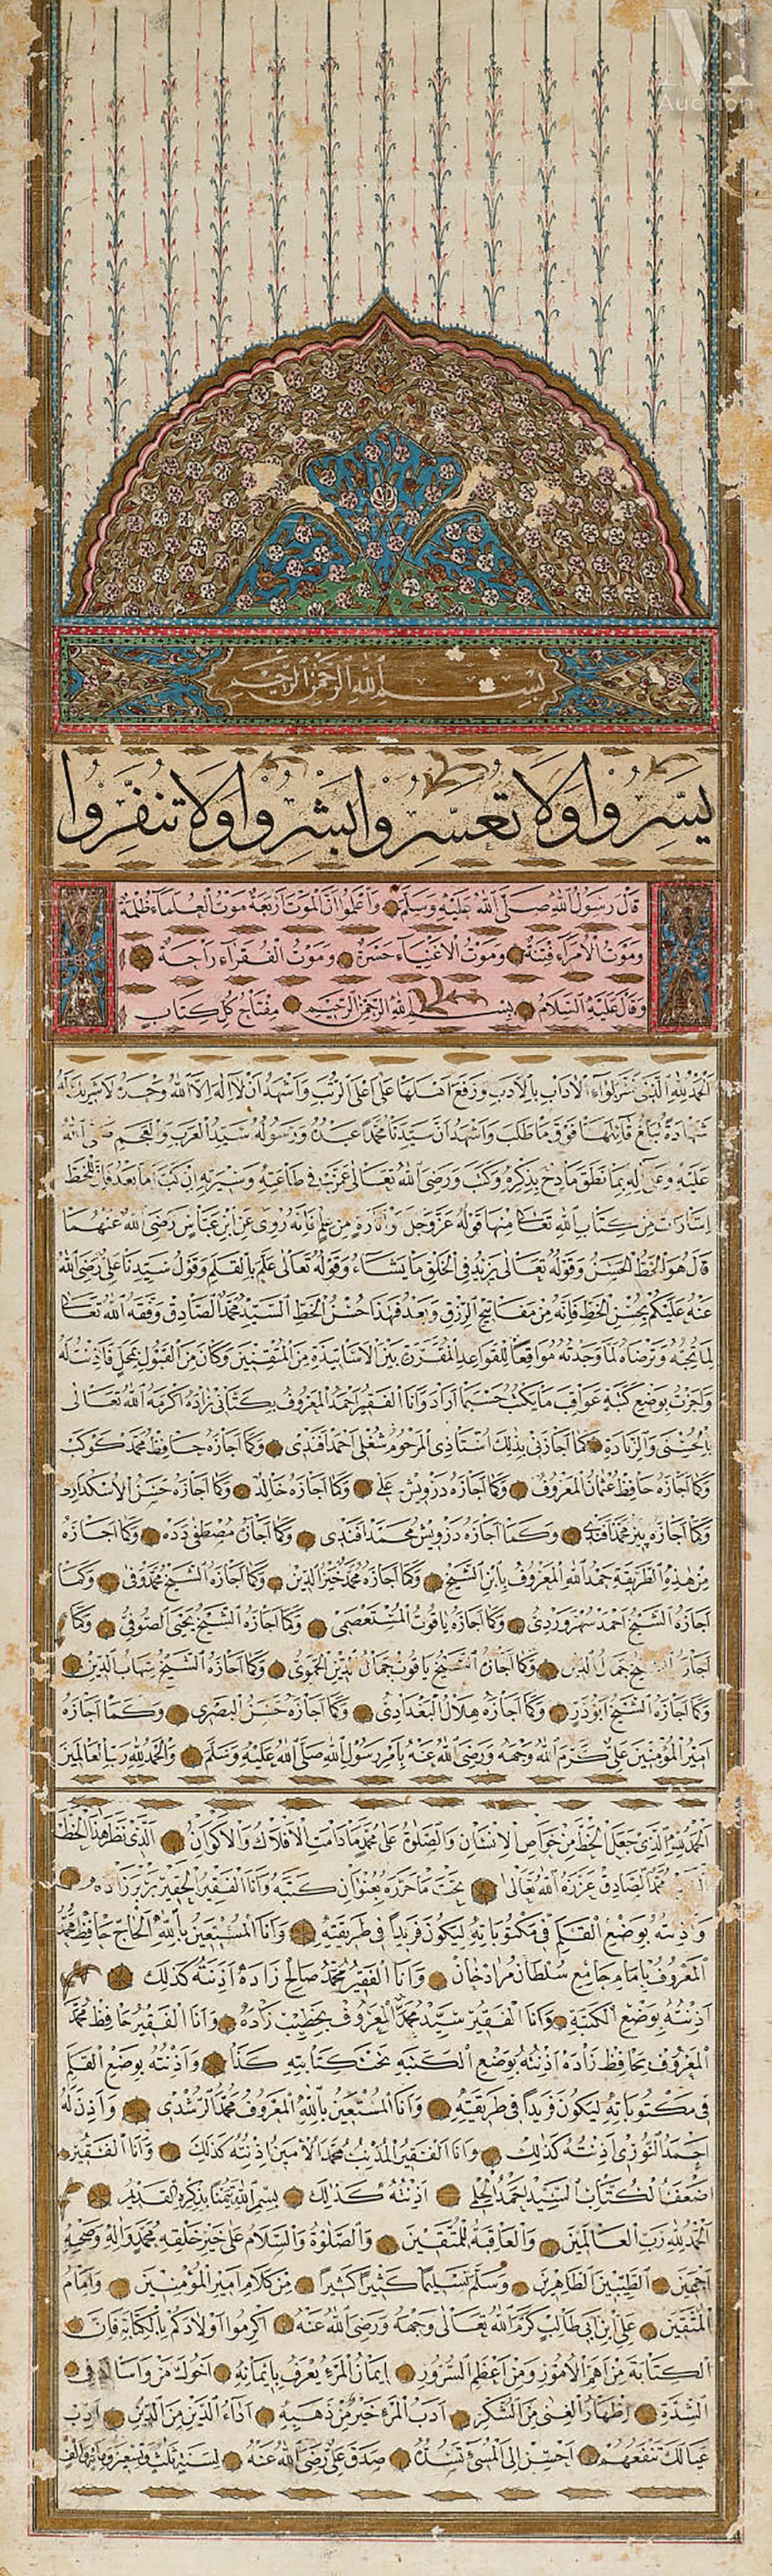 M
Auction
بسم الله الرحمن الرحيم
يَسِّرُوا وَلَا تُعَسِّرُوا بَشِّرُوا وَلَا تُنَفِّرُوا
قال رسول الله صلى الله عليه وسلم واعلموا ان الموت اربعة موت العلماء ظلمة
وموت الامراء فتنة وموت الاغنياء حسرة وموت الفقراء راحة
وقال عليه السلام بسم الله الرحمن الرحيم مفتاح كل كتاب
الحمد لله الذى نشر لواء الاداب بالادب ورفع اهلها على اعلى الرتب واشهد ان لا اله الا الله وحده لا شريك له
شهادة تبلغ قائلها فوق ما طلب واشهد ان سيدنا محمدا عبده ورسوله سيد العرب والعجم صلى الله
عليه وعلى آله بما نطق مادح بذكره وكتب ورضى الله تعالى عن فى طاعته اما بعد فان للخط
اشارات من كتاب الله تعالى منها قوله عز وجل او اثارة من علم فانه روى عن ابن عباس رضى الله عنهما
قال هو الخط الحسن وقوله تعالى يزيد فى الخلق ما يشاء وقوله تعالى علم بالقلم وقول سيدنا على رضى الله
عنه عليكم بحسن الخط فانه من مفاتيح الرزق وبعد فهذا حسن الخط السيد محمد الصادق وفقه الله تعالى
لما يحبه ويرضاه لما وجدته موافقا للقواعد المقررة بين الاساتيذة من المتقنين وكان من القبول بمحل فاذنت له
واجزت بوضع كتبه عواقب ما يكتب حسبما اراد وانا الفقير احمد المعروف بكتانى زاده اكرمه الله تعالى
بالحسنى والزيادة كما اجازنى بذلك استاذى المرحوم شغلى احمد افندى وكما اجازه حافظ محمد كوكب
وكما اجازه حافظ عثمان المعروف وكما اجازه درويش على وكما اجازه خالد وكما اجازه حسن الاسكدارى
وكما اجازه پير محمد افندى وكما اجازه درويش محمد افندى وكما اجازه مصطفى دده وكما اجازه
من هذه الطريقة حمد الله المعروف بابن الشيخ وكما اجازه محمد خير الدين وكما اجازه الشيخ محمد وفى وكما
اجازه الشيخ احمد سهروردى وكما اجازه ياقوت المستعصمى وكما اجازه الشيخ يحيى الصوفى وكما
اجازه الشيخ جمال الدين وكما اجازه الشيخ ياقوت جمال الدين الحموى وكما اجازه الشيخ شهاب الدين
وكما اجازه الشيخ ابوذر وكما اجازه هلال البغدادى وكما اجازه حسن البصرى وكما اجازه
امير المؤمنين على كرم الله وجهه ورضى الله عنه بامر رسول الله صلى الله عليه وسلم والحمد لله رب العالمين
الحمد لله الذى جعل الخط من خواص الانسان والصلوة على محمد ما دامت الافلاك والاكوان الذى نظر هذا الخط
محمد الصادق عززه الله تعالى تحت ما حرره بعنوان كتبه وانا الفقير الحقير زاده
واذنته بوضع القلم فى مكتوباته ليكون فريدا فى طريقته وانا المستعين بالله الحاج حافظ محمد
المعروف بامام جامع سلطان مراد خان وانا الفقير محمد صالح زاده اذنته كذلك
اذنته بوضع الكتبة وانا الفقير سيد محمد المعروف بخطيب زاده وانا الفقير حافظ محمد
المعروف بحافظ زاده اذنته بوضع الكتبه تحت كتابته كذا واذنته بوضع القلم
فى مكتوباته ليكون فريدا فى طريقته وانا المستعين بالله المعروف محمد الرشدى واذن له
احمد النورى اذنته كذلك وانا الفقير المذنب محمد الامين اذنته كذلك وانا الفقير
اضعف الكتاب السيد احمد الحلمى اذنته كذلك بسم الله تيمنا بذكره القديم
الحمد لله رب العالمين والعاقبة للمتقين والصلوة والسلام على خير خلقه محمد واله وصحبه
اجمعين الطيبين الطاهرين وسلم تسليما كثيرا كثيرا من كلام امير المؤمنين وامام
المتقين على ابن ابى طالب كرم الله تعالى وجهه ورضى الله عنه اكرموا اولادكم بالكتابة فان
الكتابة من اهم الامور ومن اعظم السرور ايمان المرء يعرف بايمانه اخوك من واساك فى
الشدة اظهار الغنى من الشكر ادب المرء خير من ذهبه اداء الدين من الدين ادب
عيالك تنفعهم احسن الى المسئ تسد صدق على رضى الله عنه لسنة ثلث وتسعين ومائة والف